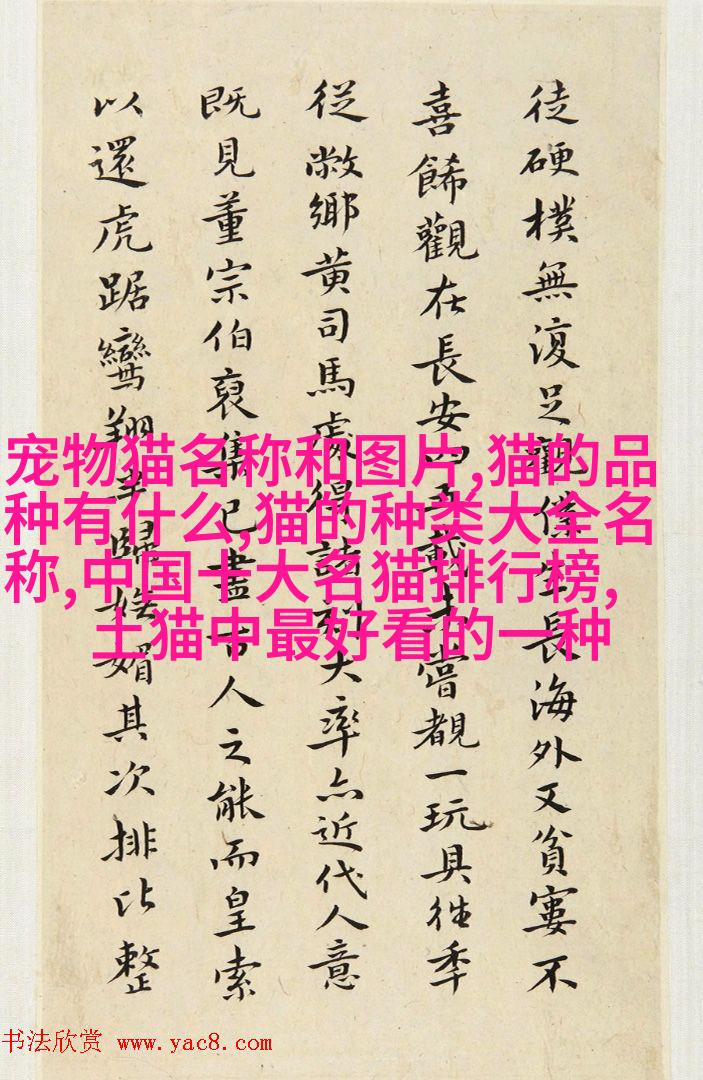 徒硬樸無復足觀僕生長海外又貧窶不
喜餙觀在長安四五載未嘗覩一玩具往季
從敝鄉黄司馬處得刻大率亦近代人意
既見董宗伯裒集已盡古人之能而皇索
以還虎踞鸞翔歸媚其次排比整
宠物猫名称和图片,猫的品
种有什么,猫的种类大全名
称,中国十大名猫排行榜,
土猫中最好看的一种
书法欣赏 www.yac8.com